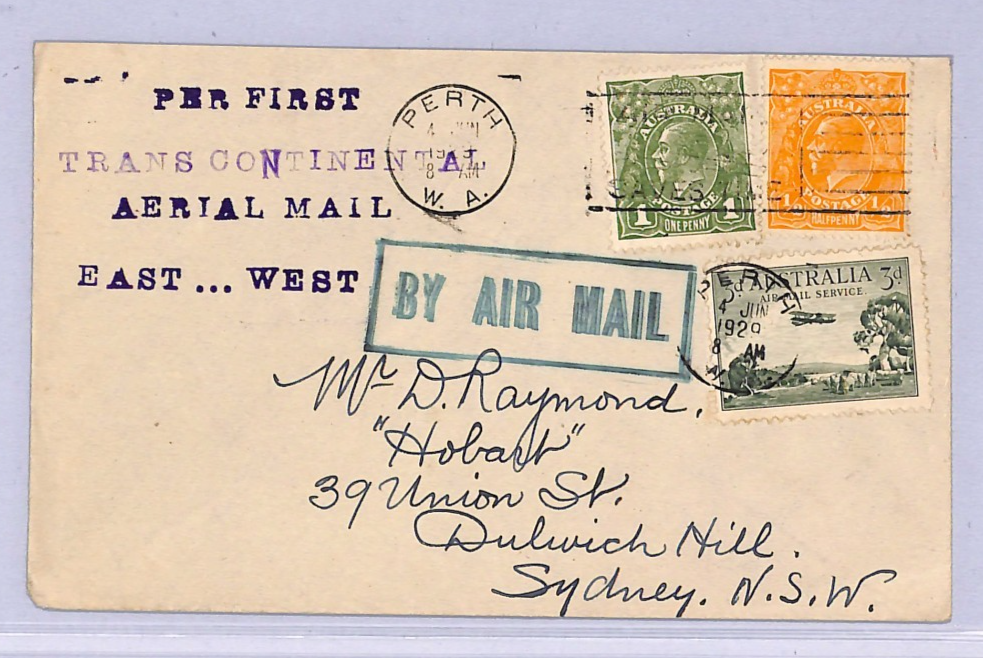 PER FIRST
TRANS CONTINENTAL
AERIAL MAIL
EAST ... WEST
PERTH
4 JUN
1929
8 AM
W. A.
AUSTRALIA
POSTAGE
1 1
ONE PENNY
AUSTRALIA
POSTAGE
1/2 1/2
HALFPENNY
SAVES TIME
BY AIR MAIL
3d AUSTRALIA 3d
AIR MAIL SERVICE.
PERTH
4 JUN
1929
8 AM
W.
Mr D. Raymond,
"Hobart"
39 Union St.
Dulwich Hill.
Sydney. N.S.W.